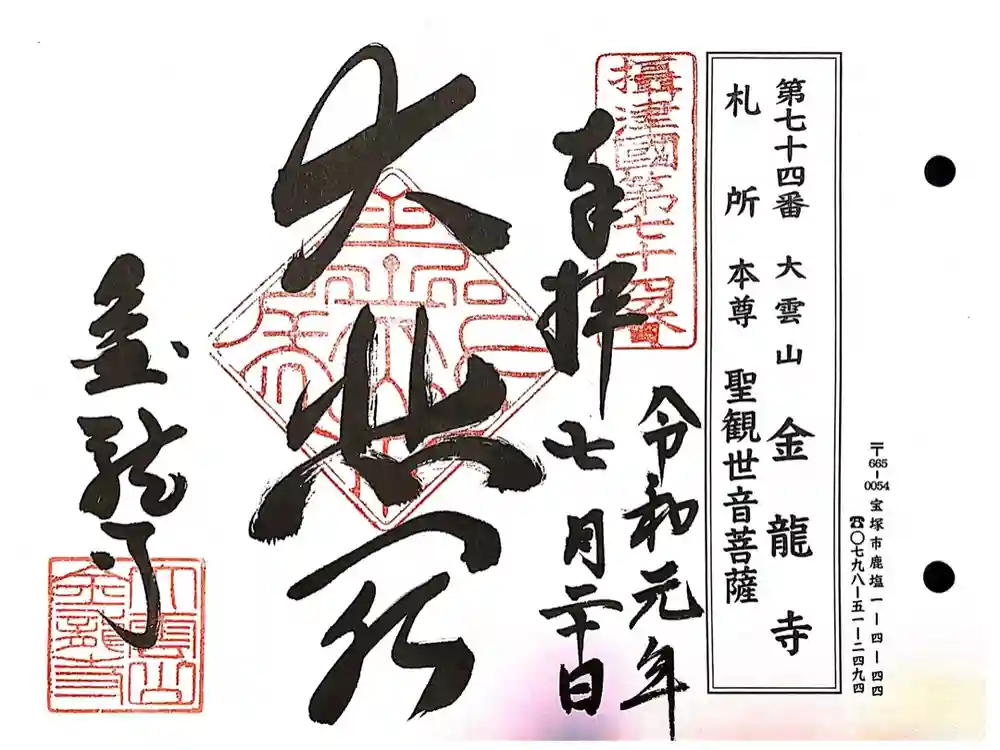 〒665-0054 宝塚市鹿塩一ー四ー四四
☎〇七九八ー五一ー二四九四
第七十四番 大雲山 金龍寺
札所 本尊 聖観世音菩薩
攝津國第七十四番
奉拝
令和元年
七月二十日
大悲殿
金龍寺
大雲山
金龍寺